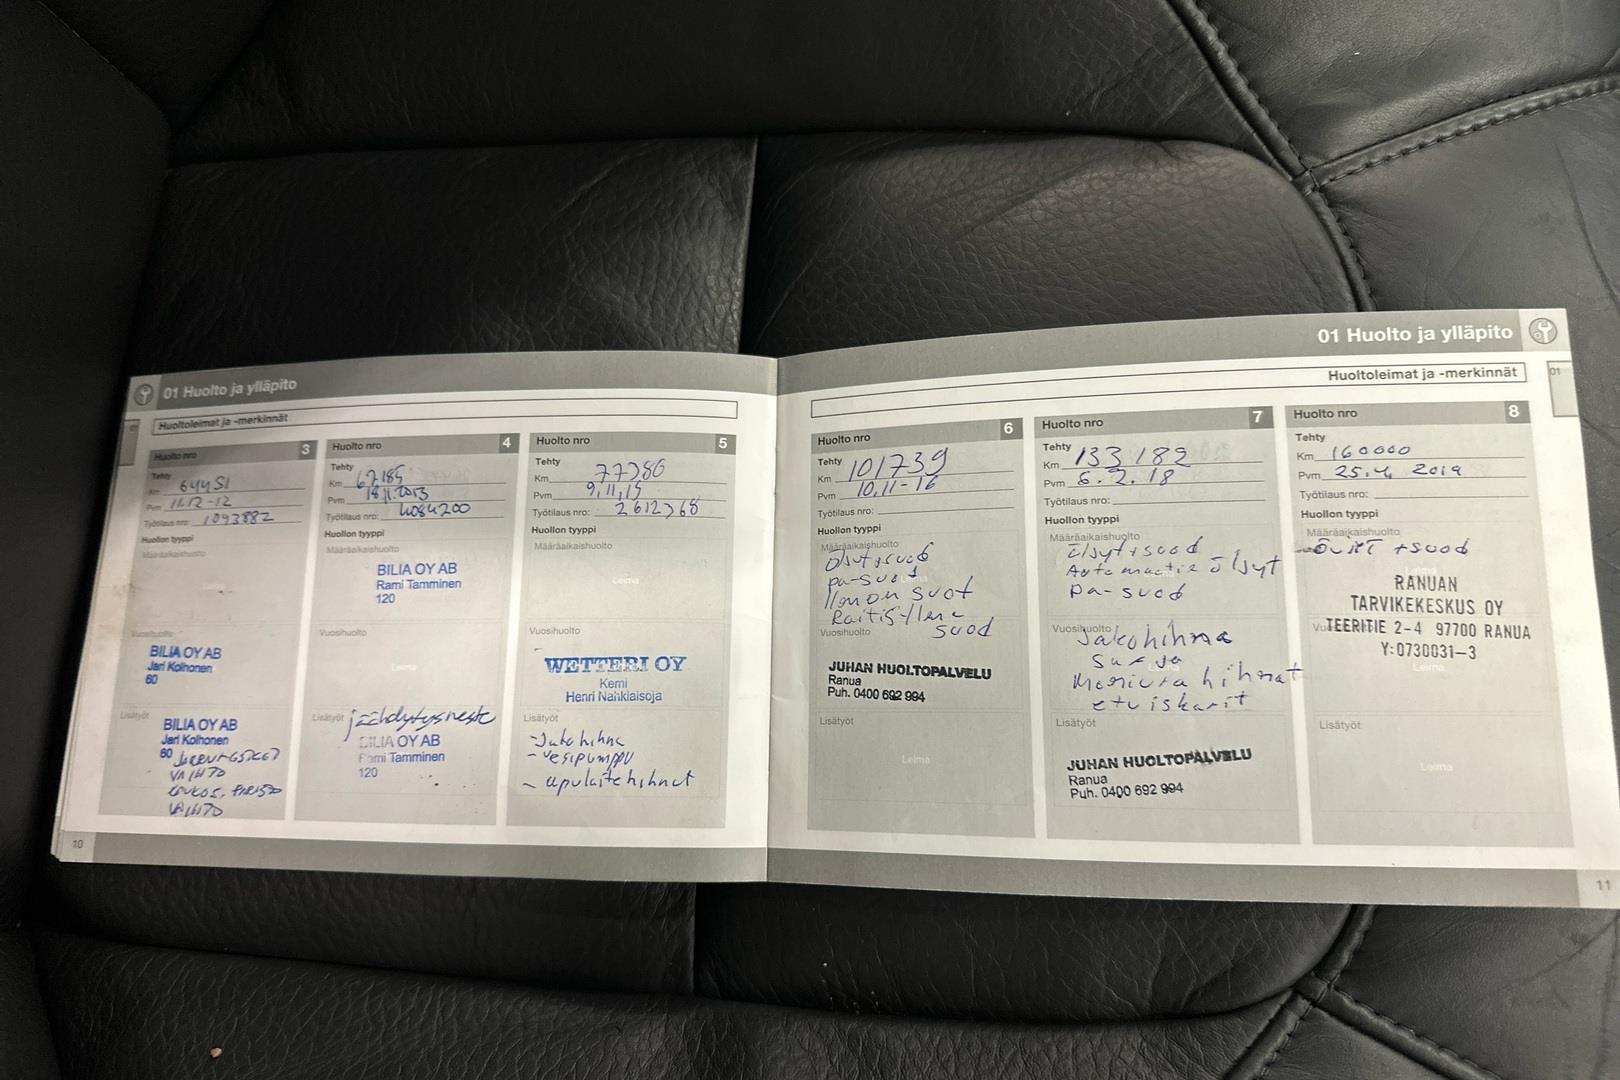 01 Huolto ja ylläpito
Huoltoleimat ja -merkinnät
Huolto nro 3
Tehty
Km 64451
Pvm 11.12-12
Työtilaus nro: 1093882
Huollon tyyppi
Määräaikaishuolto
Vuosihuolto
BILIA OY AB
Jari Kolhonen
60
Lisätyöt
BILIA OY AB
Jari Kolhonen
60
VAIHTO
VAIHTO
Huolto nro 4
Tehty
Km 67185
Pvm 18.11.2013
Työtilaus nro: 4084200
Huollon tyyppi
Määräaikaishuolto
BILIA OY AB
Rami Tamminen
120
Vuosihuolto
Leima
Lisätyöt jäähdytysneste
BILIA OY AB
Rami Tamminen
120
Huolto nro 5
Tehty
Km 77380
Pvm 9,11,15
Työtilaus nro: 2612368
Huollon tyyppi
Määräaikaishuolto
Leima
Vuosihuolto
WETTERI OY
Kemi
Henri Nahkiaisoja
Lisätyöt
-Jakohihna
-vesipumppu
- apulaitehihnat
10
01 Huolto ja ylläpito
Huoltoleimat ja -merkinnät
01
Huolto nro 6
Tehty
Km 101739
Pvm 10.11-16
Työtilaus nro:
Huollon tyyppi
Määräaikaishuolto
Öljyt+suod
pa-suod
Ilman suot
Raitisilma
suod
Vuosihuolto
JUHAN HUOLTOPALVELU
Ranua
Puh. 0400 692 994
Lisätyöt
Leima
Huolto nro 7
Tehty
Km 133182
Pvm 6.2.18
Työtilaus nro:
Huollon tyyppi
Määräaikaishuolto
Öljyt+suod
Automaatti öljyt
pa-suod
Vuosihuolto
Jakohihna
sarja
hihnat
etuiskarit
Lisätyöt
JUHAN HUOLTOPALVELU
Ranua
Puh. 0400 692 994
Huolto nro 8
Tehty
Km 160000
Pvm 25.4 2019
Työtilaus nro:
Huollon tyyppi
Määräaikaishuolto
Öljyt +suod
RANUAN
TARVIKEKESKUS OY
TEERITIE 2-4 97700 RANUA
Y:0730031-3
Leima
Lisätyöt
Leima
11